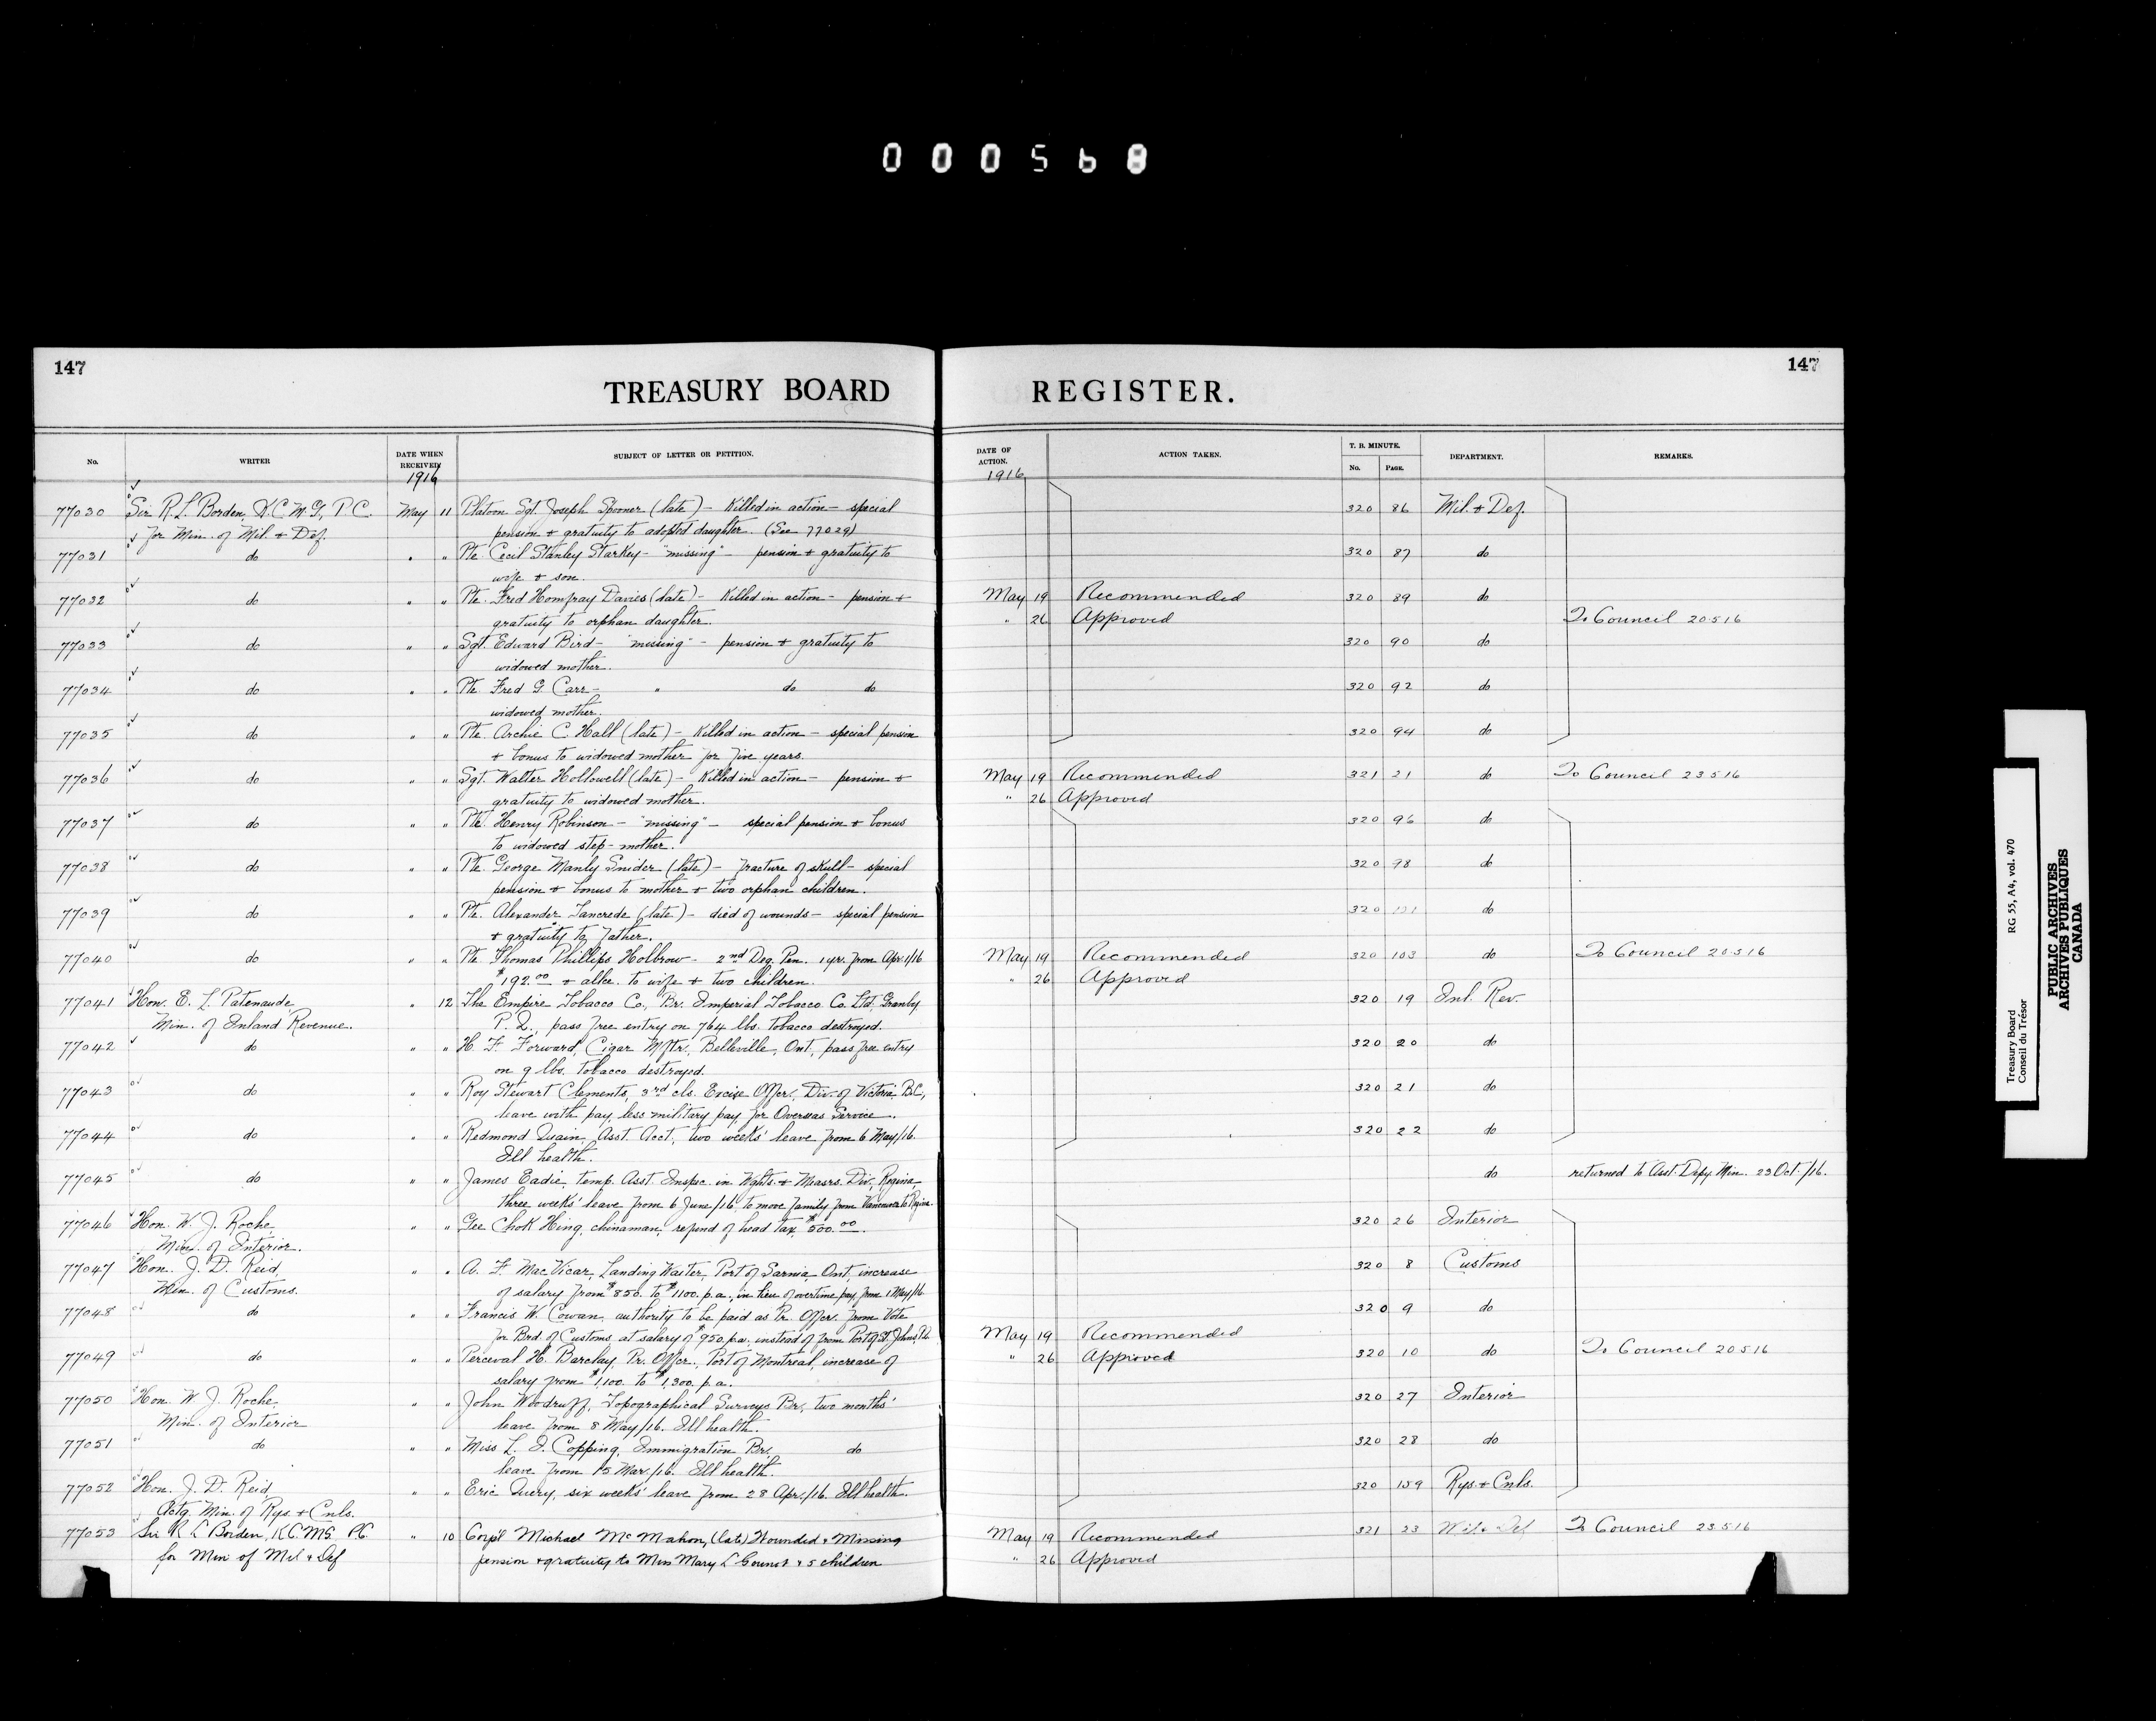 000568
147
147
TREASURY BOARD REGISTER.
No. WRITER DATE WHEN RECEIVED 1916 SUBJECT OF LETTER OR PETITION. DATE OF ACTION. 1916 ACTION TAKEN. T. B. MINUTE. No. PAGE. DEPARTMENT. REMARKS.
77030 Sir R. L. Borden, K.C.M.G., P.C. May 11 Platoon Sgt. Joseph Spooner (late) - Killed in action - special 320 86 Mil. & Def.
for Min. of Mil. & Def. pension & gratuity to adopted daughter. (See 77029)
77031 do " " Pte. Cecil Stanley Starkey - "missing" - pension & gratuity to 320 87 do
wife & son.
77032 do " " Pte. Fred Homfray Davies (late) - Killed in action - pension & May 19 Recommended 320 89 do
gratuity to orphan daughter. " 26 Approved To Council 20 5 16
77033 do " " Sgt. Edward Bird - "missing" - pension & gratuity to 320 90 do
widowed mother.
77034 do " " Pte. Fred G. Carr - " do do 320 92 do
widowed mother.
77035 do " " Pte. Archie C. Hall (late) - Killed in action - special pension 320 94 do
& bonus to widowed mother for five years.
77036 do " " Sgt. Walter Hollowell (late) - Killed in action - pension & May 19 Recommended 321 21 do To Council 23 5 16
gratuity to widowed mother. " 26 Approved
77037 do " " Pte. Henry Robinson - "missing" - special pension & bonus 320 96 do
to widowed step-mother.
77038 do " " Pte. George Manly Snider (late) - fracture of skull - special 320 98 do
pension & bonus to mother & two orphan children.
77039 do " " Pte. Alexander Tancrede (late) - died of wounds - special pension 320 101 do
& gratuity to father.
77040 do " " Pte. Thomas Phillips Holbrow - 2nd Deg. Pen. 1 yr. from Apr. 1/16 May 19 Recommended 320 103 do To Council 20 5 16
$192.00 & allce. to wife & two children. " 26 Approved
77041 Hon. E. L. Patenaude, " 12 The Empire Tobacco Co., Br. Imperial Tobacco Co. Ltd., Granby, 320 19 Inl. Rev.
Min. of Inland Revenue. P.Q., pass free entry on 764 lbs. tobacco destroyed.
77042 do " " H. F. Forward, Cigar Mftr., Belleville, Ont., pass free entry 320 20 do
on 9 lbs. tobacco destroyed.
77043 do " " Roy Stewart Clements, 3rd cls. Excise Offcr., Div. of Victoria B.C., 320 21 do
leave with pay, less military pay, for Overseas Service.
77044 do " " Redmond Quain, Asst. Acct., two weeks' leave from 6 May/16. 320 22 do
Ill health.
77045 do " " James Eadie, temp. Asst. Inspc. in Wghts. & Measrs. Div., Regina, do returned to Asst. Depy. Min. 23 Oct./16.
three weeks' leave from 6 June/16, to move family from Vancouver to Regina.
77046 Hon. W. J. Roche, " " Gee Chok Hing, chinaman, refund of head tax, $500.00. 320 26 Interior
Min. of Interior.
77047 Hon. J. D. Reid, " " A. F. MacVicar, Landing Waiter, Port of Sarnia, Ont., increase 320 8 Customs
Min. of Customs. of salary from $850. to $1100. p.a., in lieu of overtime pay, from 1 May/16
77048 do " " Francis W. Cowan, authority to be paid as Pr. Offcr. from Vote 320 9 do
for Brd. of Customs at salary of $950. p.a. instead of from Port of St. Johns, P.Q. May 19 Recommended
77049 do " " Perceval H. Barclay, Pr. Offcr., Port of Montreal, increase of " 26 Approved 320 10 do To Council 20 5 16
salary from $1,100. to $1,300. p.a.
77050 Hon. W. J. Roche, " " John Woodruff, Topographical Surveys Br., two months' 320 27 Interior
Min. of Interior leave from 8 May/16. Ill health.
77051 do " " Miss L. I. Copping, Immigration Br., do 320 28 do
leave from 15 Mar./16. Ill health.
77052 Hon. J. D. Reid, " " Eric Query, six weeks' leave from 28 Apr./16. Ill health. 320 159 Rys. & Cnls.
Actg. Min. of Rys. & Cnls.
77053 Sir R L Borden, K.C.M.G. P.C. " 10 Corp'l Michael McMahon, (late) Wounded & Missing May 19 Recommended 321 23 Mil. & Def To Council 23 5 16
for Min of Mil & Def pension & gratuity to Mrs Mary L & 5 children " 26 Approved
Treasury Board RG 55, A4, vol. 470
Conseil du Trésor
PUBLIC ARCHIVES
ARCHIVES PUBLIQUES
CANADA